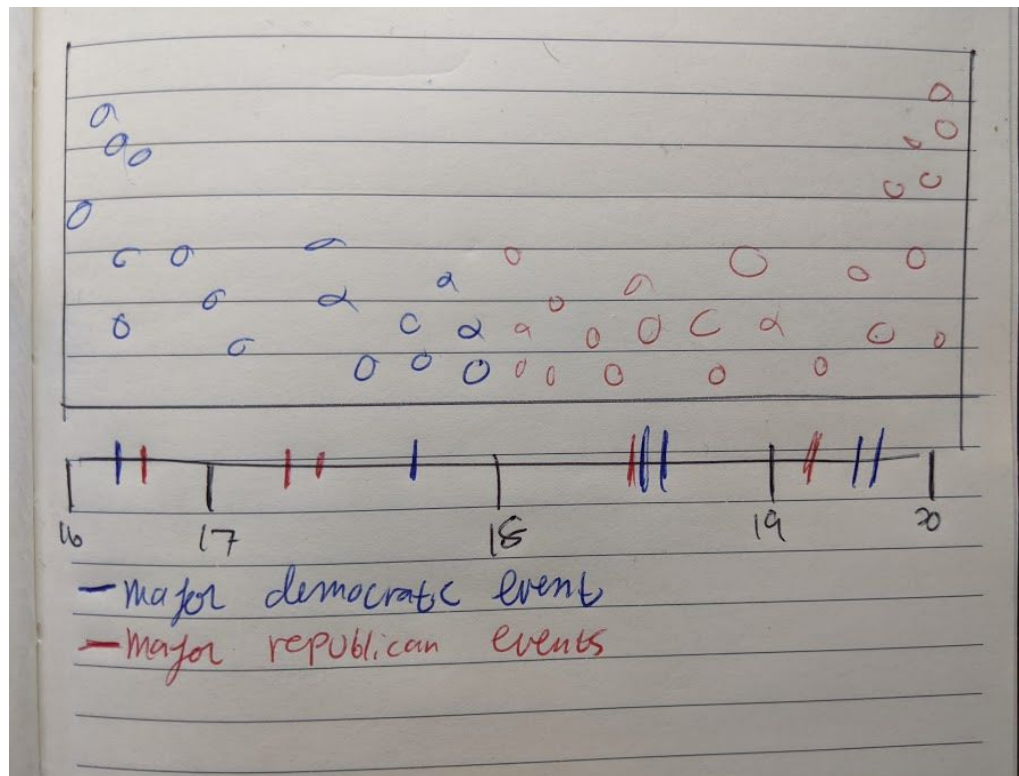 16 17 18 19 20
- major democratic event
- major republican events